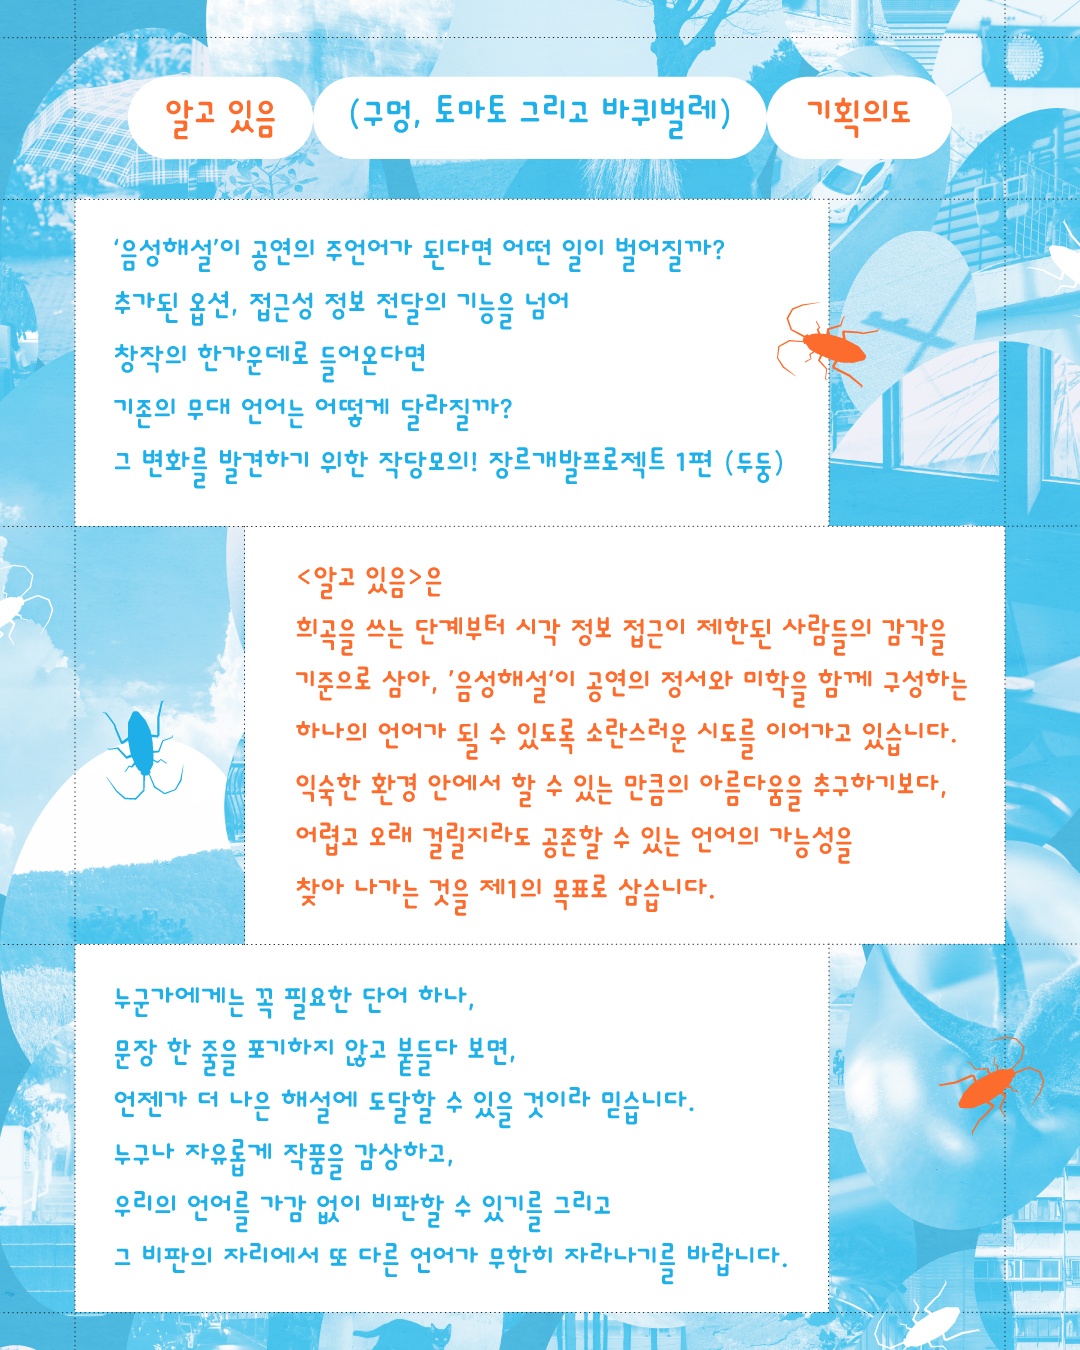 알고 있음 (구멍, 토마토 그리고 바퀴벌레) 기획의도
‘음성해설’이 공연의 주언어가 된다면 어떤 일이 벌어질까?
추가된 옵션, 접근성 정보 전달의 기능을 넘어
창작의 한가운데로 들어온다면
기존의 무대 언어는 어떻게 달라질까?
그 변화를 발견하기 위한 작당모의! 장르개발프로젝트 1편 (두둥)
<알고 있음>은
희곡을 쓰는 단계부터 시각 정보 접근이 제한된 사람들의 감각을
기준으로 삼아, ’음성해설‘이 공연의 정서와 미학을 함께 구성하는
하나의 언어가 될 수 있도록 소란스러운 시도를 이어가고 있습니다.
익숙한 환경 안에서 할 수 있는 만큼의 아름다움을 추구하기보다,
어렵고 오래 걸릴지라도 공존할 수 있는 언어의 가능성을
찾아 나가는 것을 제1의 목표로 삼습니다.
누군가에게는 꼭 필요한 단어 하나,
문장 한 줄을 포기하지 않고 붙들다 보면,
언젠가 더 나은 해설에 도달할 수 있을 것이라 믿습니다.
누구나 자유롭게 작품을 감상하고,
우리의 언어를 가감 없이 비판할 수 있기를 그리고
그 비판의 자리에서 또 다른 언어가 무한히 자라나기를 바랍니다.